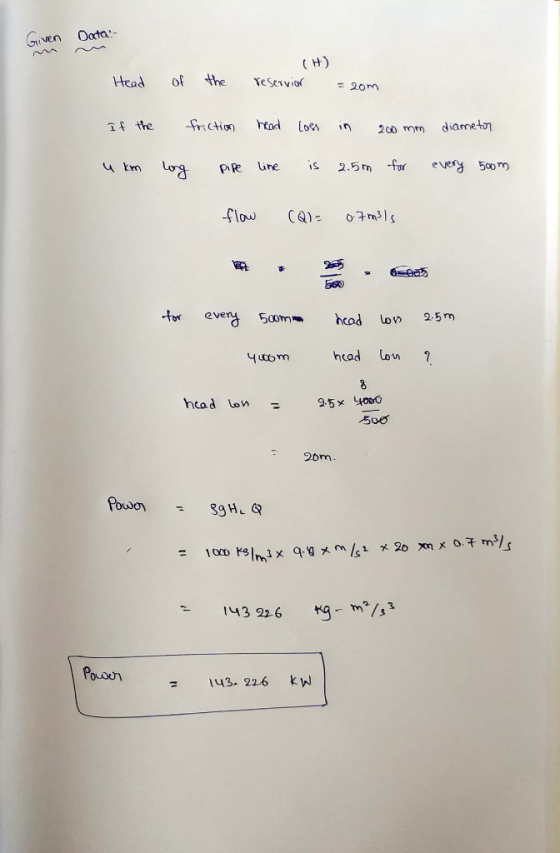 Given Data:-
(H)
Head of the reservior = 20m
If the friction head loss in 200 mm diameter
4 km long pipe line is 2.5m for every 500m
flow (Q) = 0.7m³/s
for every 500m head loss 2.5m
4000m head loss ?
8
head loss = 2.5 x 4000
500
= 20m.
Power = ρgHL Q
= 1000 kg/m³ x 9.8 x m/s² x 20 m x 0.7 m³/s
= 143 226 kg - m²/s³
Power = 143.226 kW